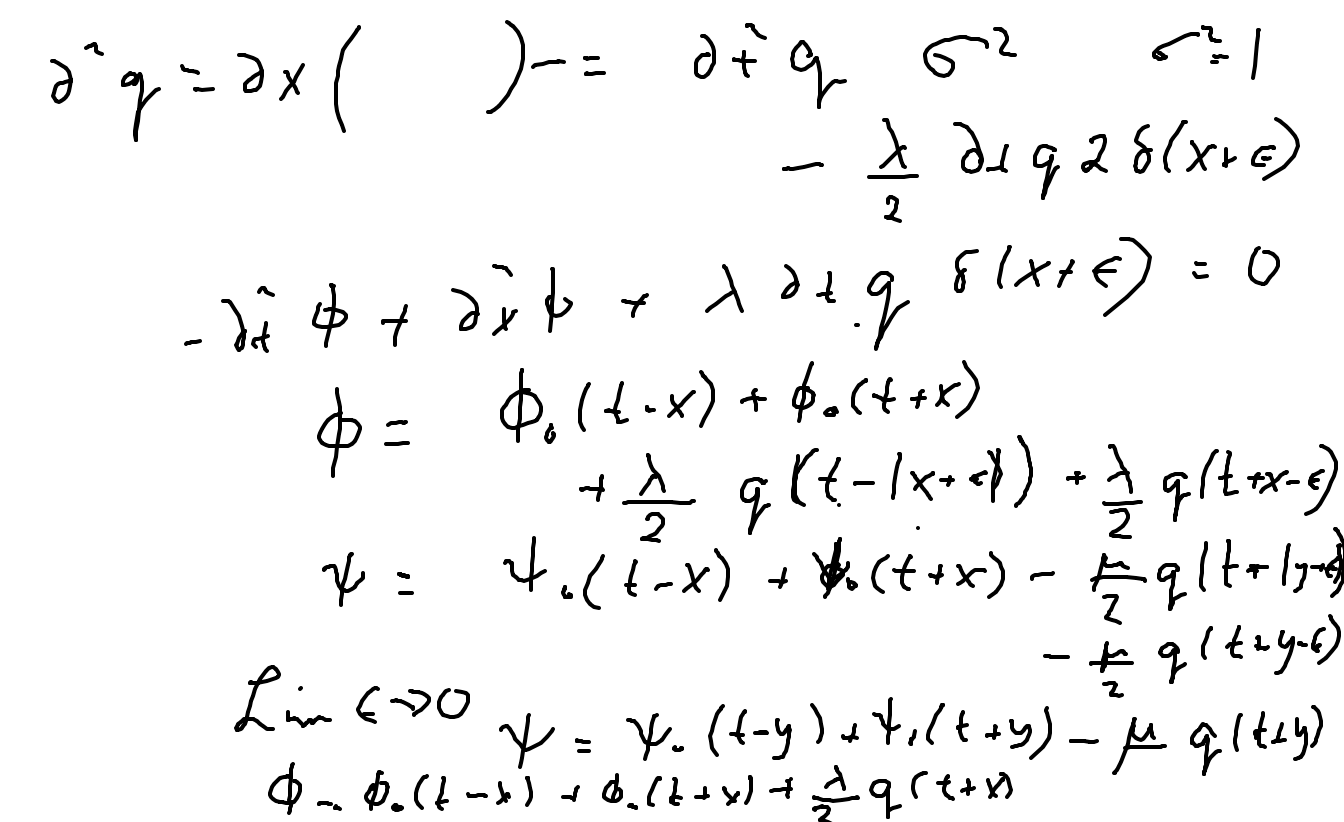 ∂² q = ∂x (      ) - = ∂t² q   σ²   σ² = 1
- λ/2 ∂t q 2 δ(x+ϵ)
- ∂t² ϕ + ∂x² ϕ + λ ∂t q δ(x+ϵ) = 0
ϕ = ϕ₀(t-x) + ϕ₀(t+x)
+ λ/2 q(t-|x+ϵ|) + λ/2 q(t+x-ϵ)
ψ = ψ₀(t-x) + ψ₀(t+x) - μ/2 q(t-|y+ϵ|)
- μ/2 q(t+y-ϵ)
Lim ϵ→0
ψ = ψ₀(t-y) + ψ₁(t+y) - μ q(t+y)
ϕ = ϕ₀(t-x) + ϕ₀(t+x) + λ/2 q(t+x)